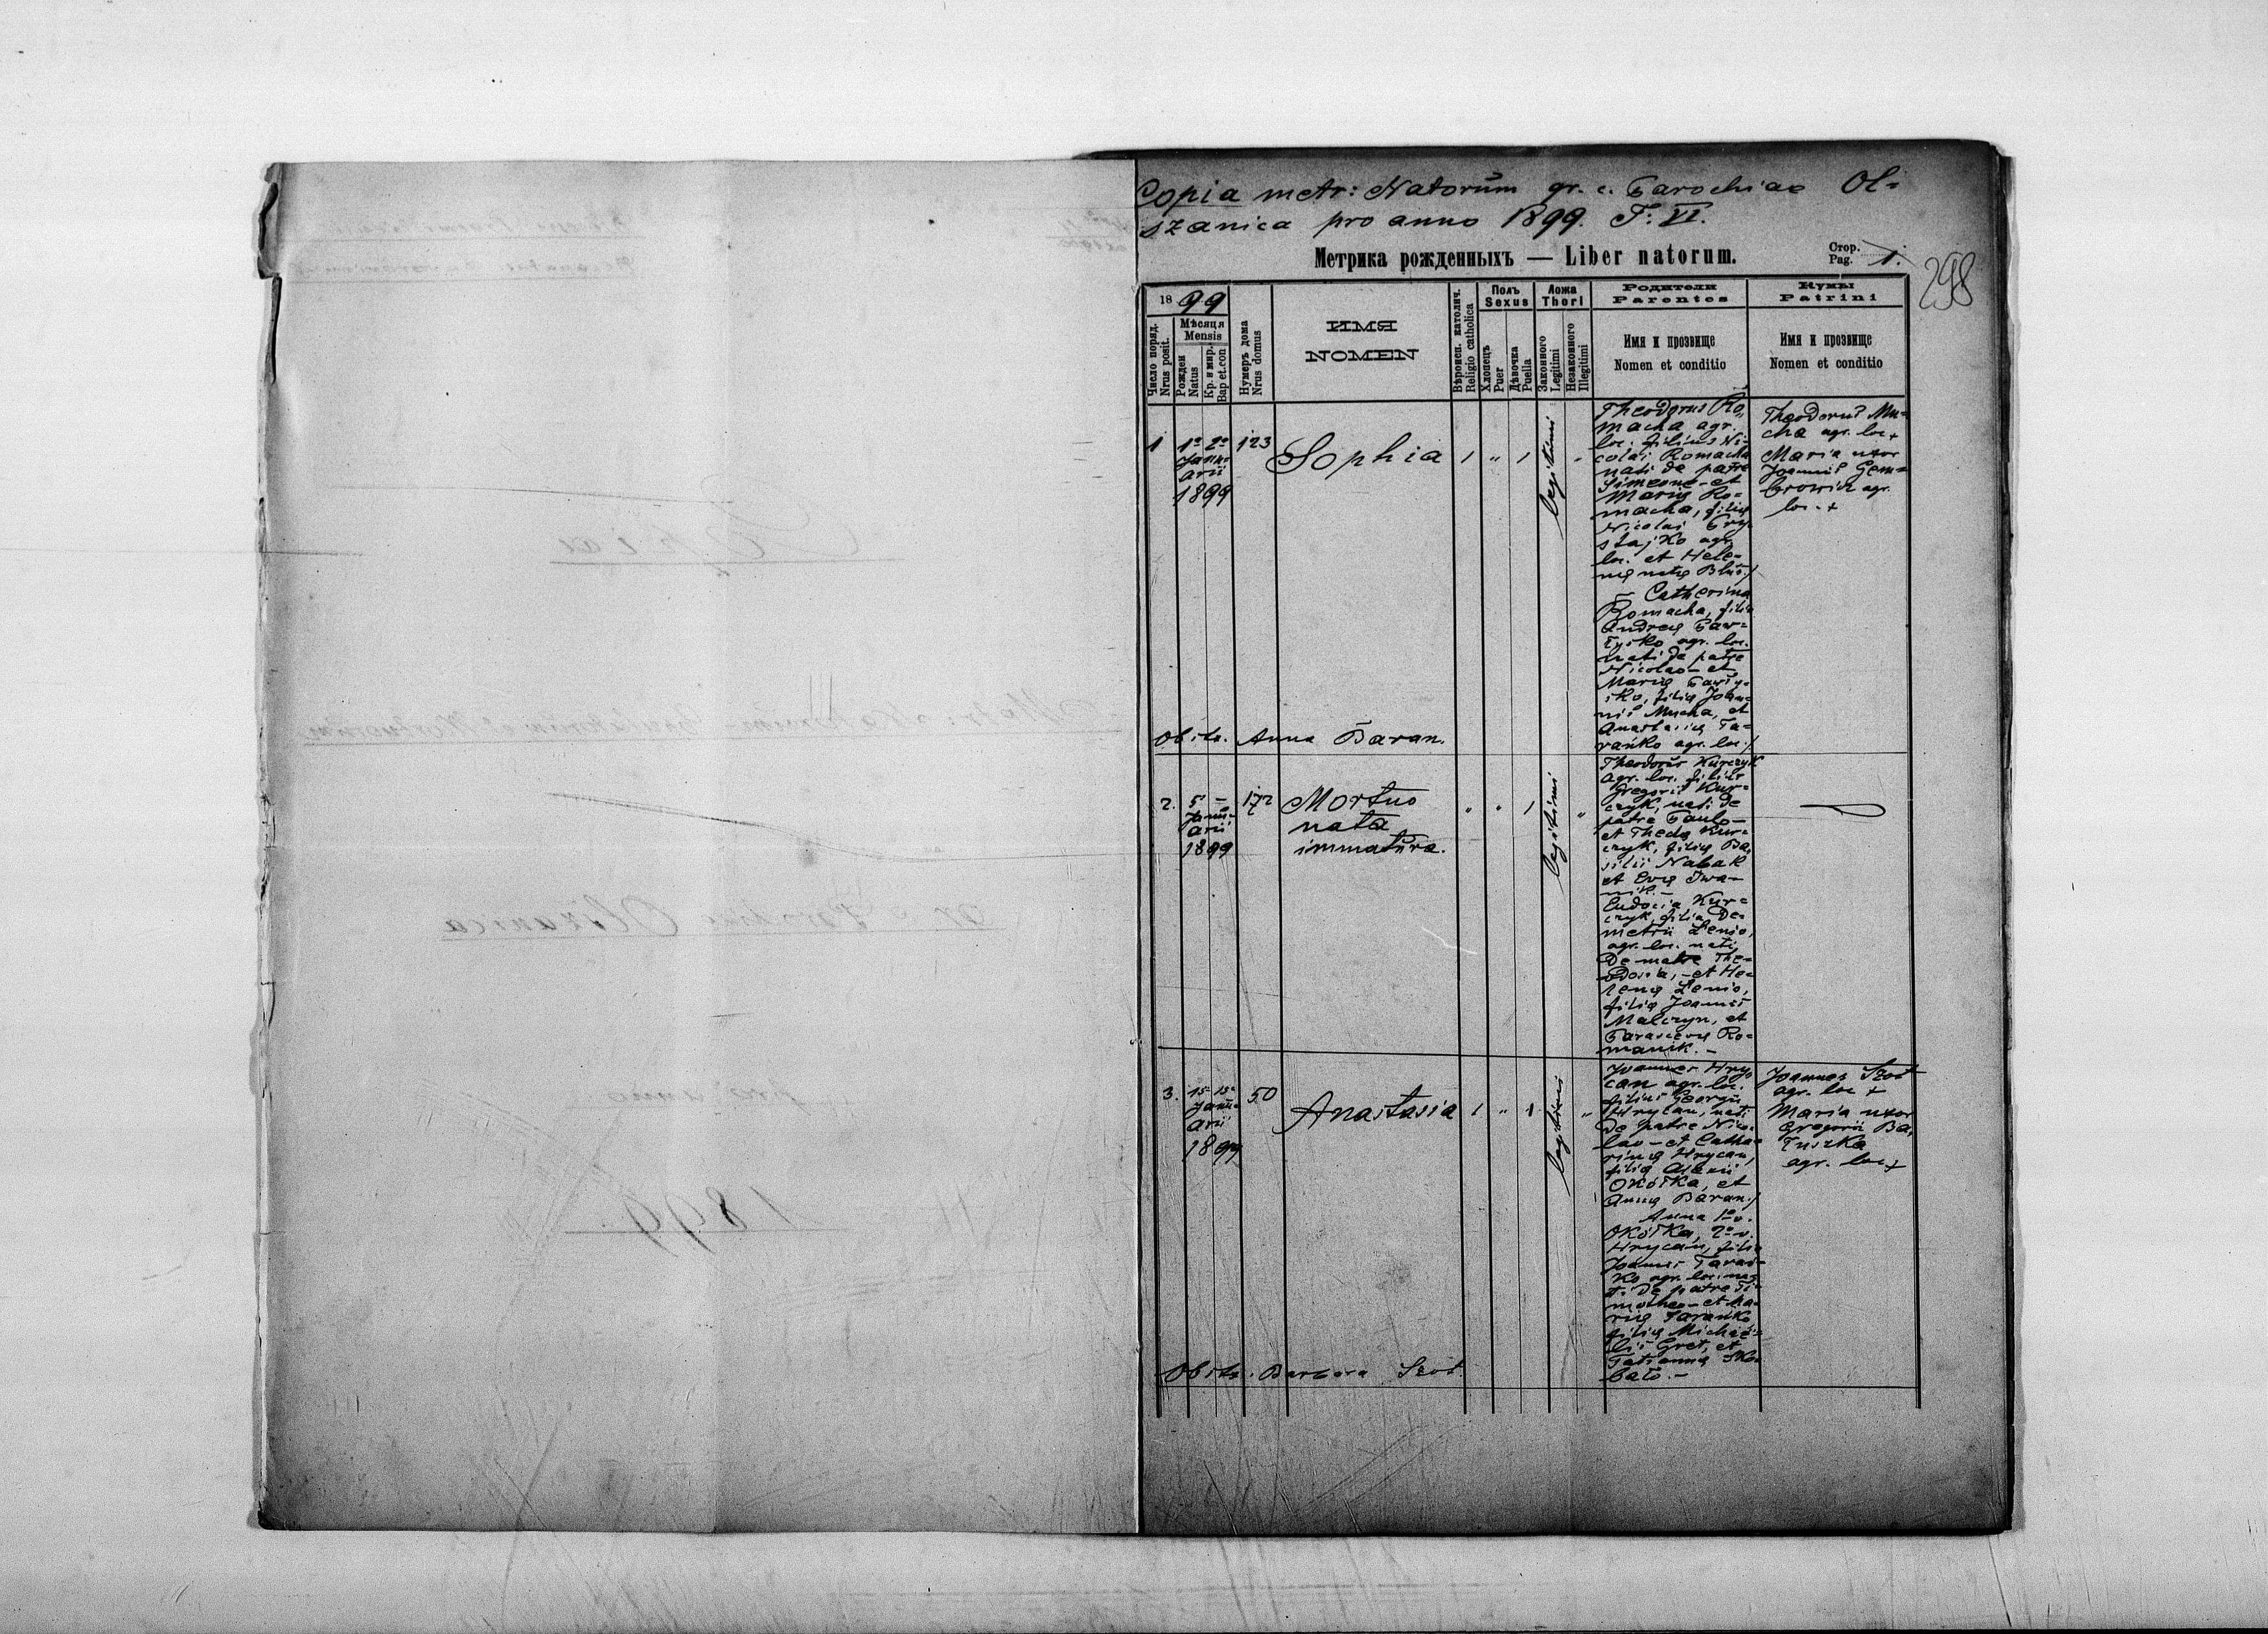 Copia metr: Natorum gr. c. Parochiae Ol-
szanica pro anno 1899. T: VI.
Метрика рожденныхъ — Liber natorum.
Стор.
Pag. 1.
298
1899
Число поряд.
Nrus posit.
Мѣсяця
Mensis
Рожден
Natus
Кр. и мир.
Bap et.con
Нумеръ дома
Nrus domus
ИМЯ
NOMEN
Вѣроисп. католич.
Religio catholica
Полъ
Sexus
Хлопець
Puer
Дѣвочка
Puella
Ложа
Thori
Законного
Legitimi
Незаконного
Illegitimi
Родители
Parentes
Имя и прозвище
Nomen et conditio
Кумы
Patrini
Имя и прозвище
Nomen et conditio
1 1ª 2ª
Janu-
arii
1899
123
Sophia
1 " 1 legitimi "
Theodorus Ro-
macha agr.
loc. filius Ni-
colai Romacha
nati de patre
Simeone - et
Marię Ro-
macha, filię
Nicolai Pry-
stajko agr.
loc. et Hele-
nę natę Blus./
- Catherina
Romacha, filia
Andreę Paw-
łyśko agr. loc.
nati de patre
Nicolao - et
Marię Pawły-
sko, filię Joan-
nis Mucha, et
Anastasię Ta-
rańko agr. loc./
Theodorus Mu-
cha agr. loc. +
Maria uxor
Joannis Gem-
browicz agr.
loc. +
Obstr. Anna Baran.
2. 5 -
Janu-
arii
1899
172
Mortuo
nata
immatura.
" " 1 legitimi "
Theodorus Kurczyk
agr. loc. filius
Gregorii Kur-
czyk, nati de
patre Paulo -
et Theclę Kur-
czyk, filię Ba-
silii Nabak
et Evę Iwa-
nik. -
Eudocia Kur-
czyk, filia De-
metrii Lenio,
agr. loc. nati
de matre The-
odosia, - et He-
lenę Lenio,
filię Joannis
Malczyn, et
Parascevę Ro-
manik. -
3. 15ª 15ª
Janu-
arii
1899
50
Anastasia
1 " 1 legitimi "
Joannes Hry-
can agr. loc.
filius Georgii
Hrycan, nati
de patre Nico-
lao - et Catha-
rinę Hrycan,
filię Alexii
Okółka, et
Annę Baran./
Anna 1º v.
Okółka, 2º v.
Hrycan, filia
Joannis Tarań-
ko agr. loc. na-
ti de patre Ti-
motheo - et Ma-
rię Tarańko
filię Michaë-
lis Gret, et
Tatiannę Sko-
bało. -
Joannes Szot
agr. loc +
Maria uxor
Gregorii Ba-
łuszka
agr. loc +
Obstr. Barbara Szot.